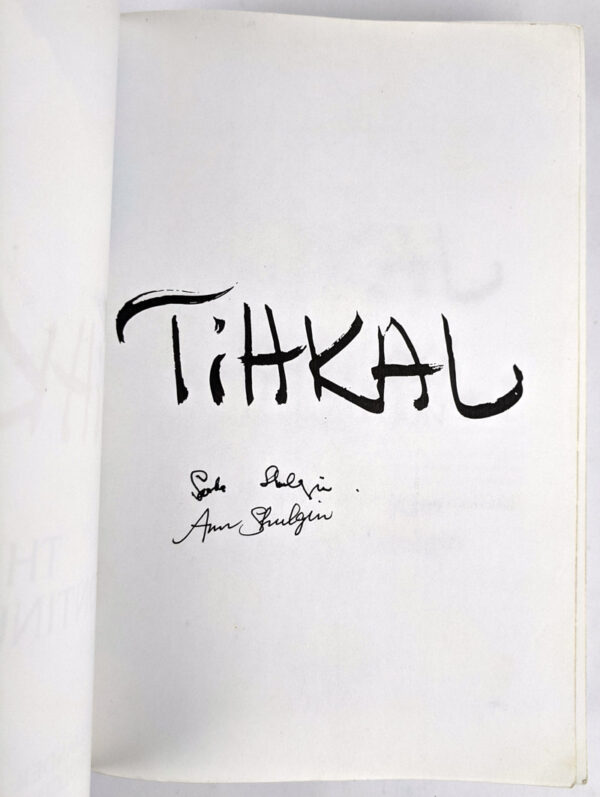 TiHKAL
Sasha Shulgin.
Ann Shulgin